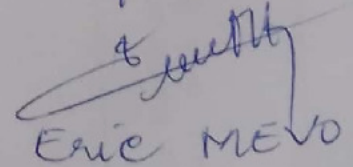 Eric MEVO